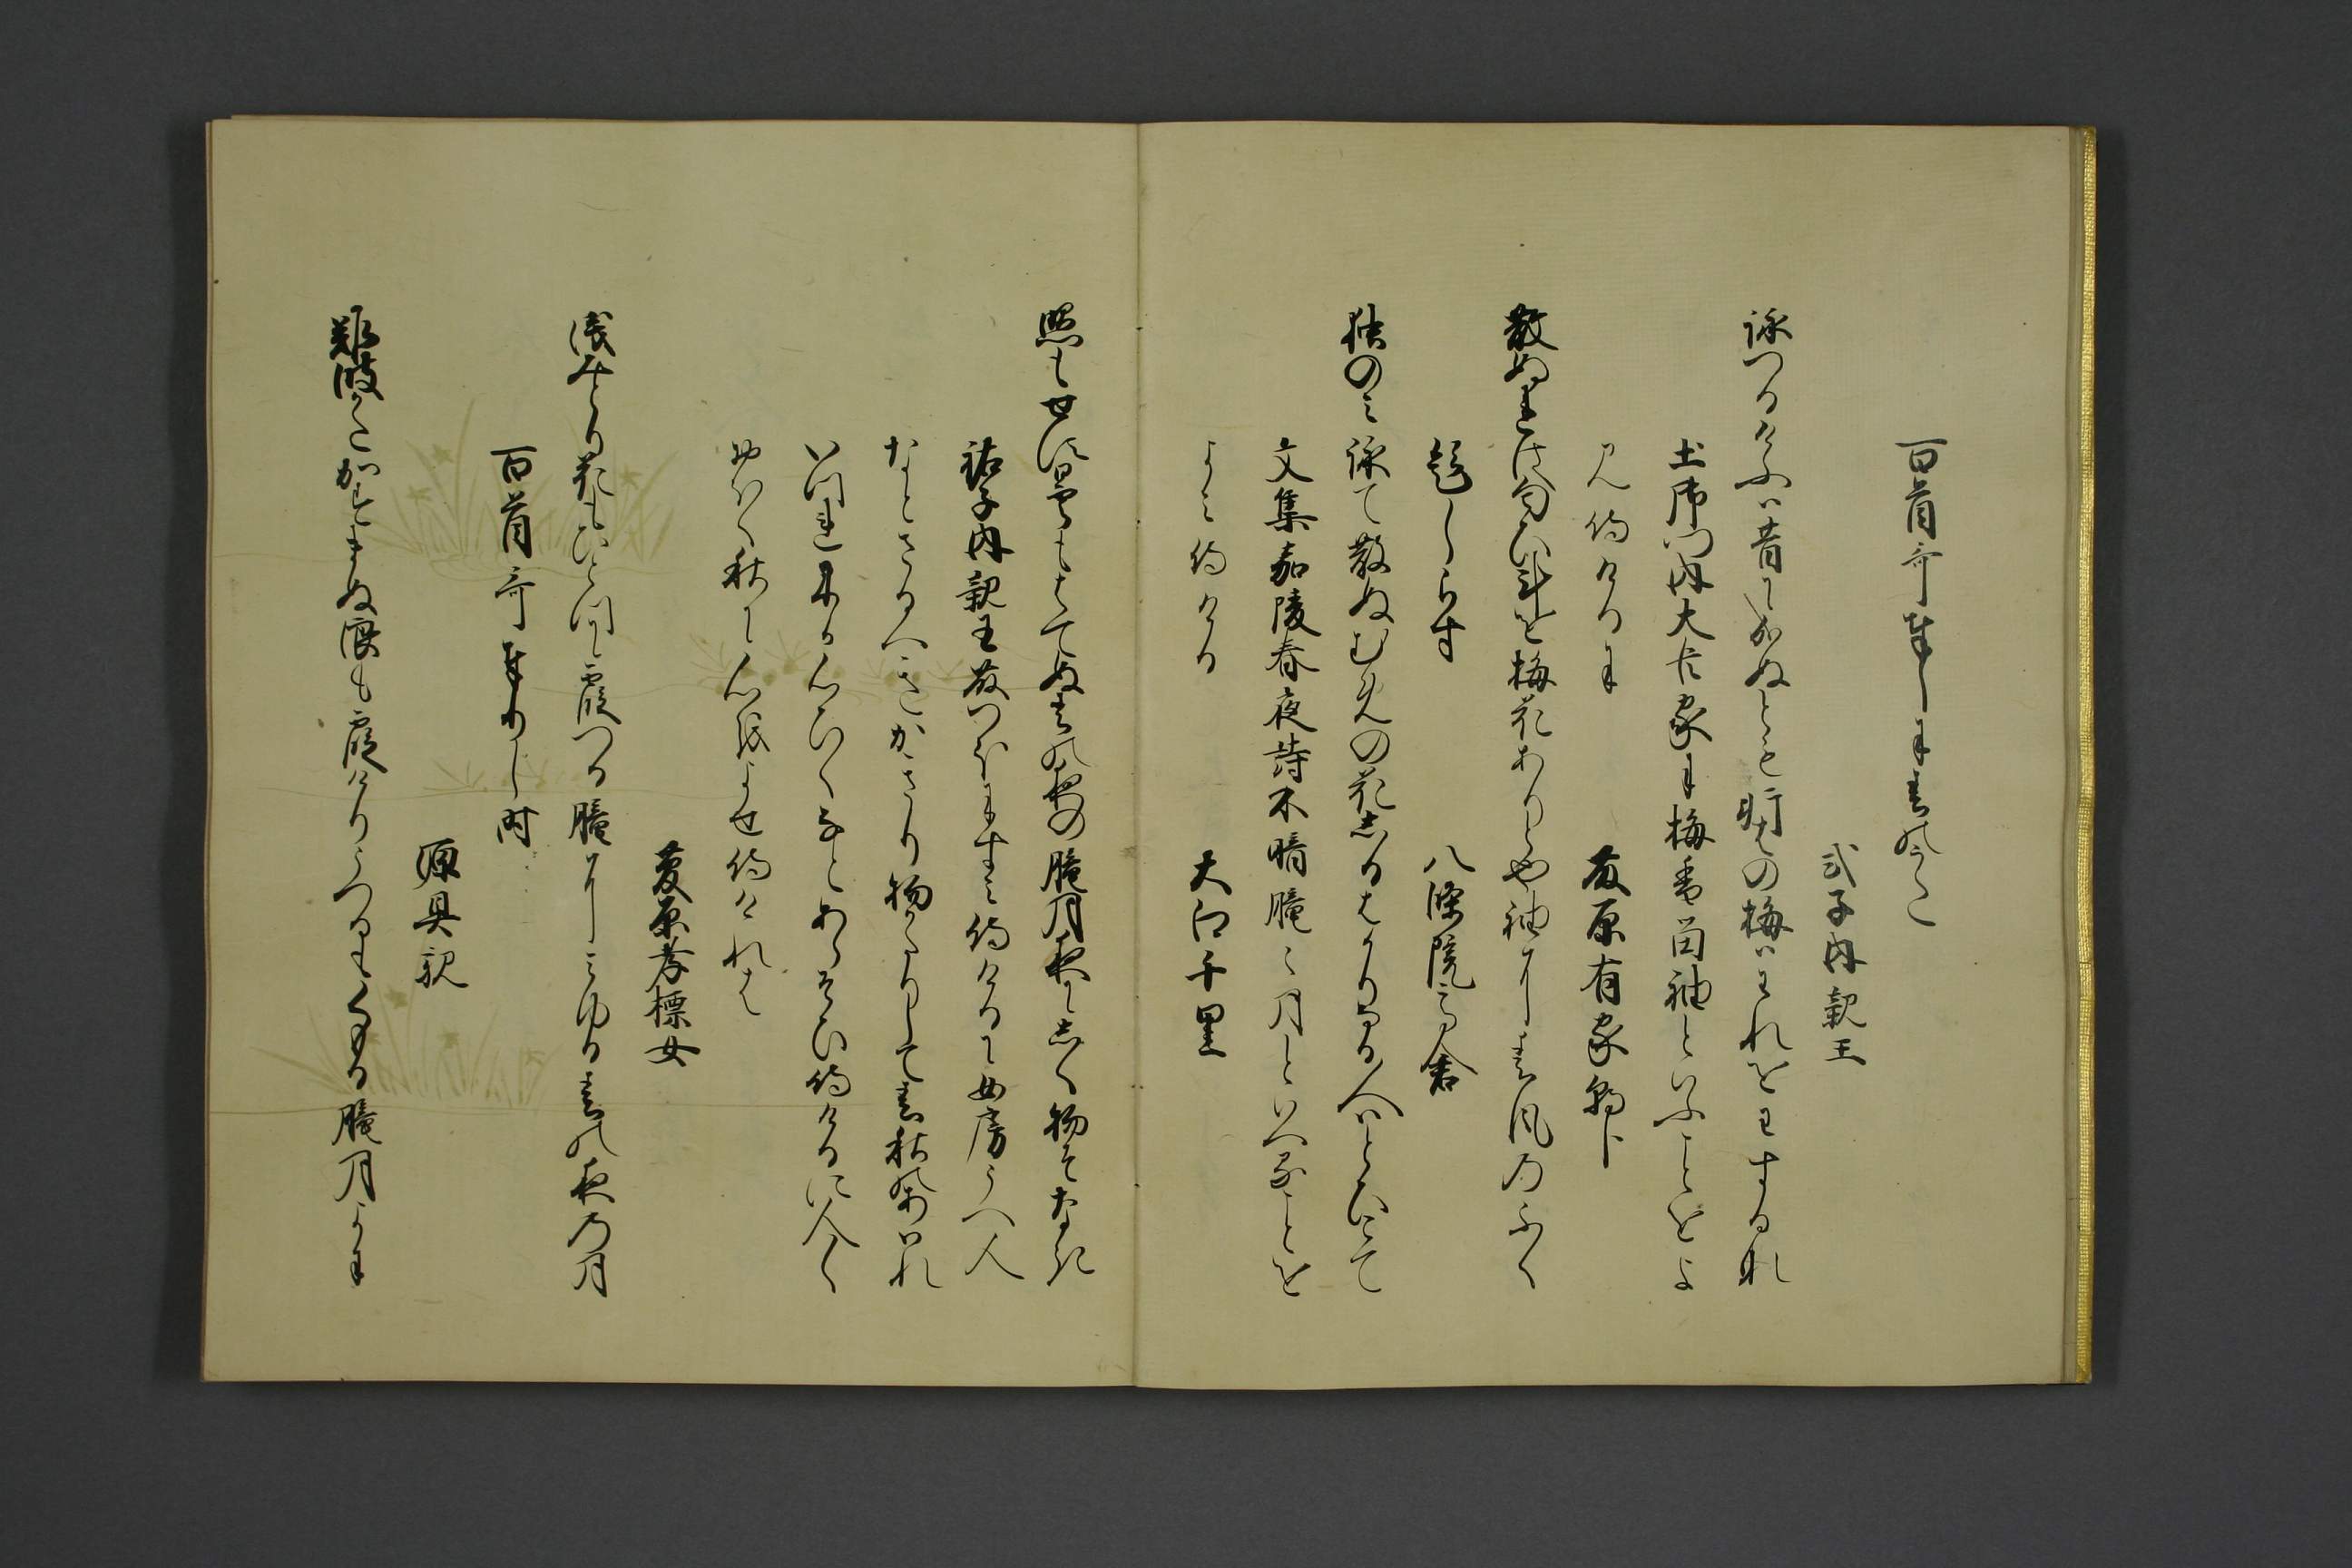 百首哥奉りしに春の哥
式子内親王
詠つるけふは昔になりぬとも軒はの梅はわれをわするな
土御門内大臣家に梅香留袖といふことをよ
み侍けるに
藤原有家朝臣
散ぬれは匂ひ計を梅花ありとや袖に春風のふく
題しらす
八條院高倉
独のみ詠て散ぬむめの花しるはかりなる人はとひこて
文集嘉陵春夜詩不明不暗朧々月といへることを
よみ侍ける
大江千里
照もせす曇もはてぬ春の夜の朧月夜にしく物そなき
祐子内親王藤つほにすみ侍けるに女房うへ人
なとさるへきかきり物かたりして春秋のあはれ
いつれにか心ひくなとあらそひ侍けるに人々
おほく秋に心をよせ侍けれは
菅原孝標女
浅みとり花もひとつに霞つゝ朧にみゆる春の夜の月
百首哥奉りし時
源具親
難波かたかすまぬ浪も霞けりうつるもくもる朧月よに